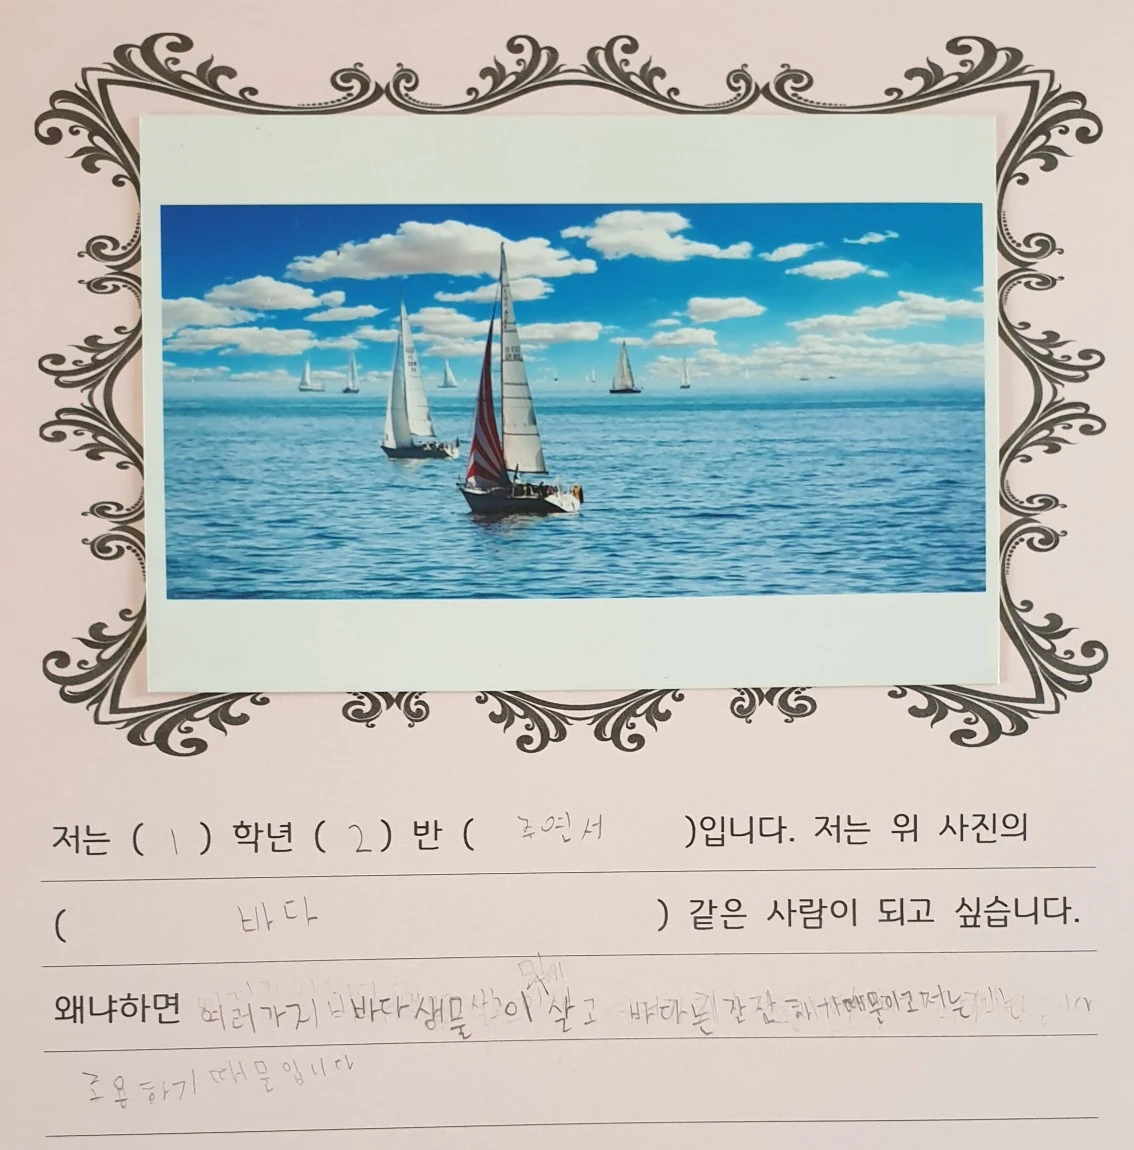 저는 ( 1 ) 학년 ( 2 ) 반 ( 주연서 )입니다. 저는 위 사진의
( 바다 ) 같은 사람이 되고 싶습니다.
왜냐하면 여러가지 바다생물이 살고 바다는 잔잔하기때문이고 저는
조용하기 때문입니다